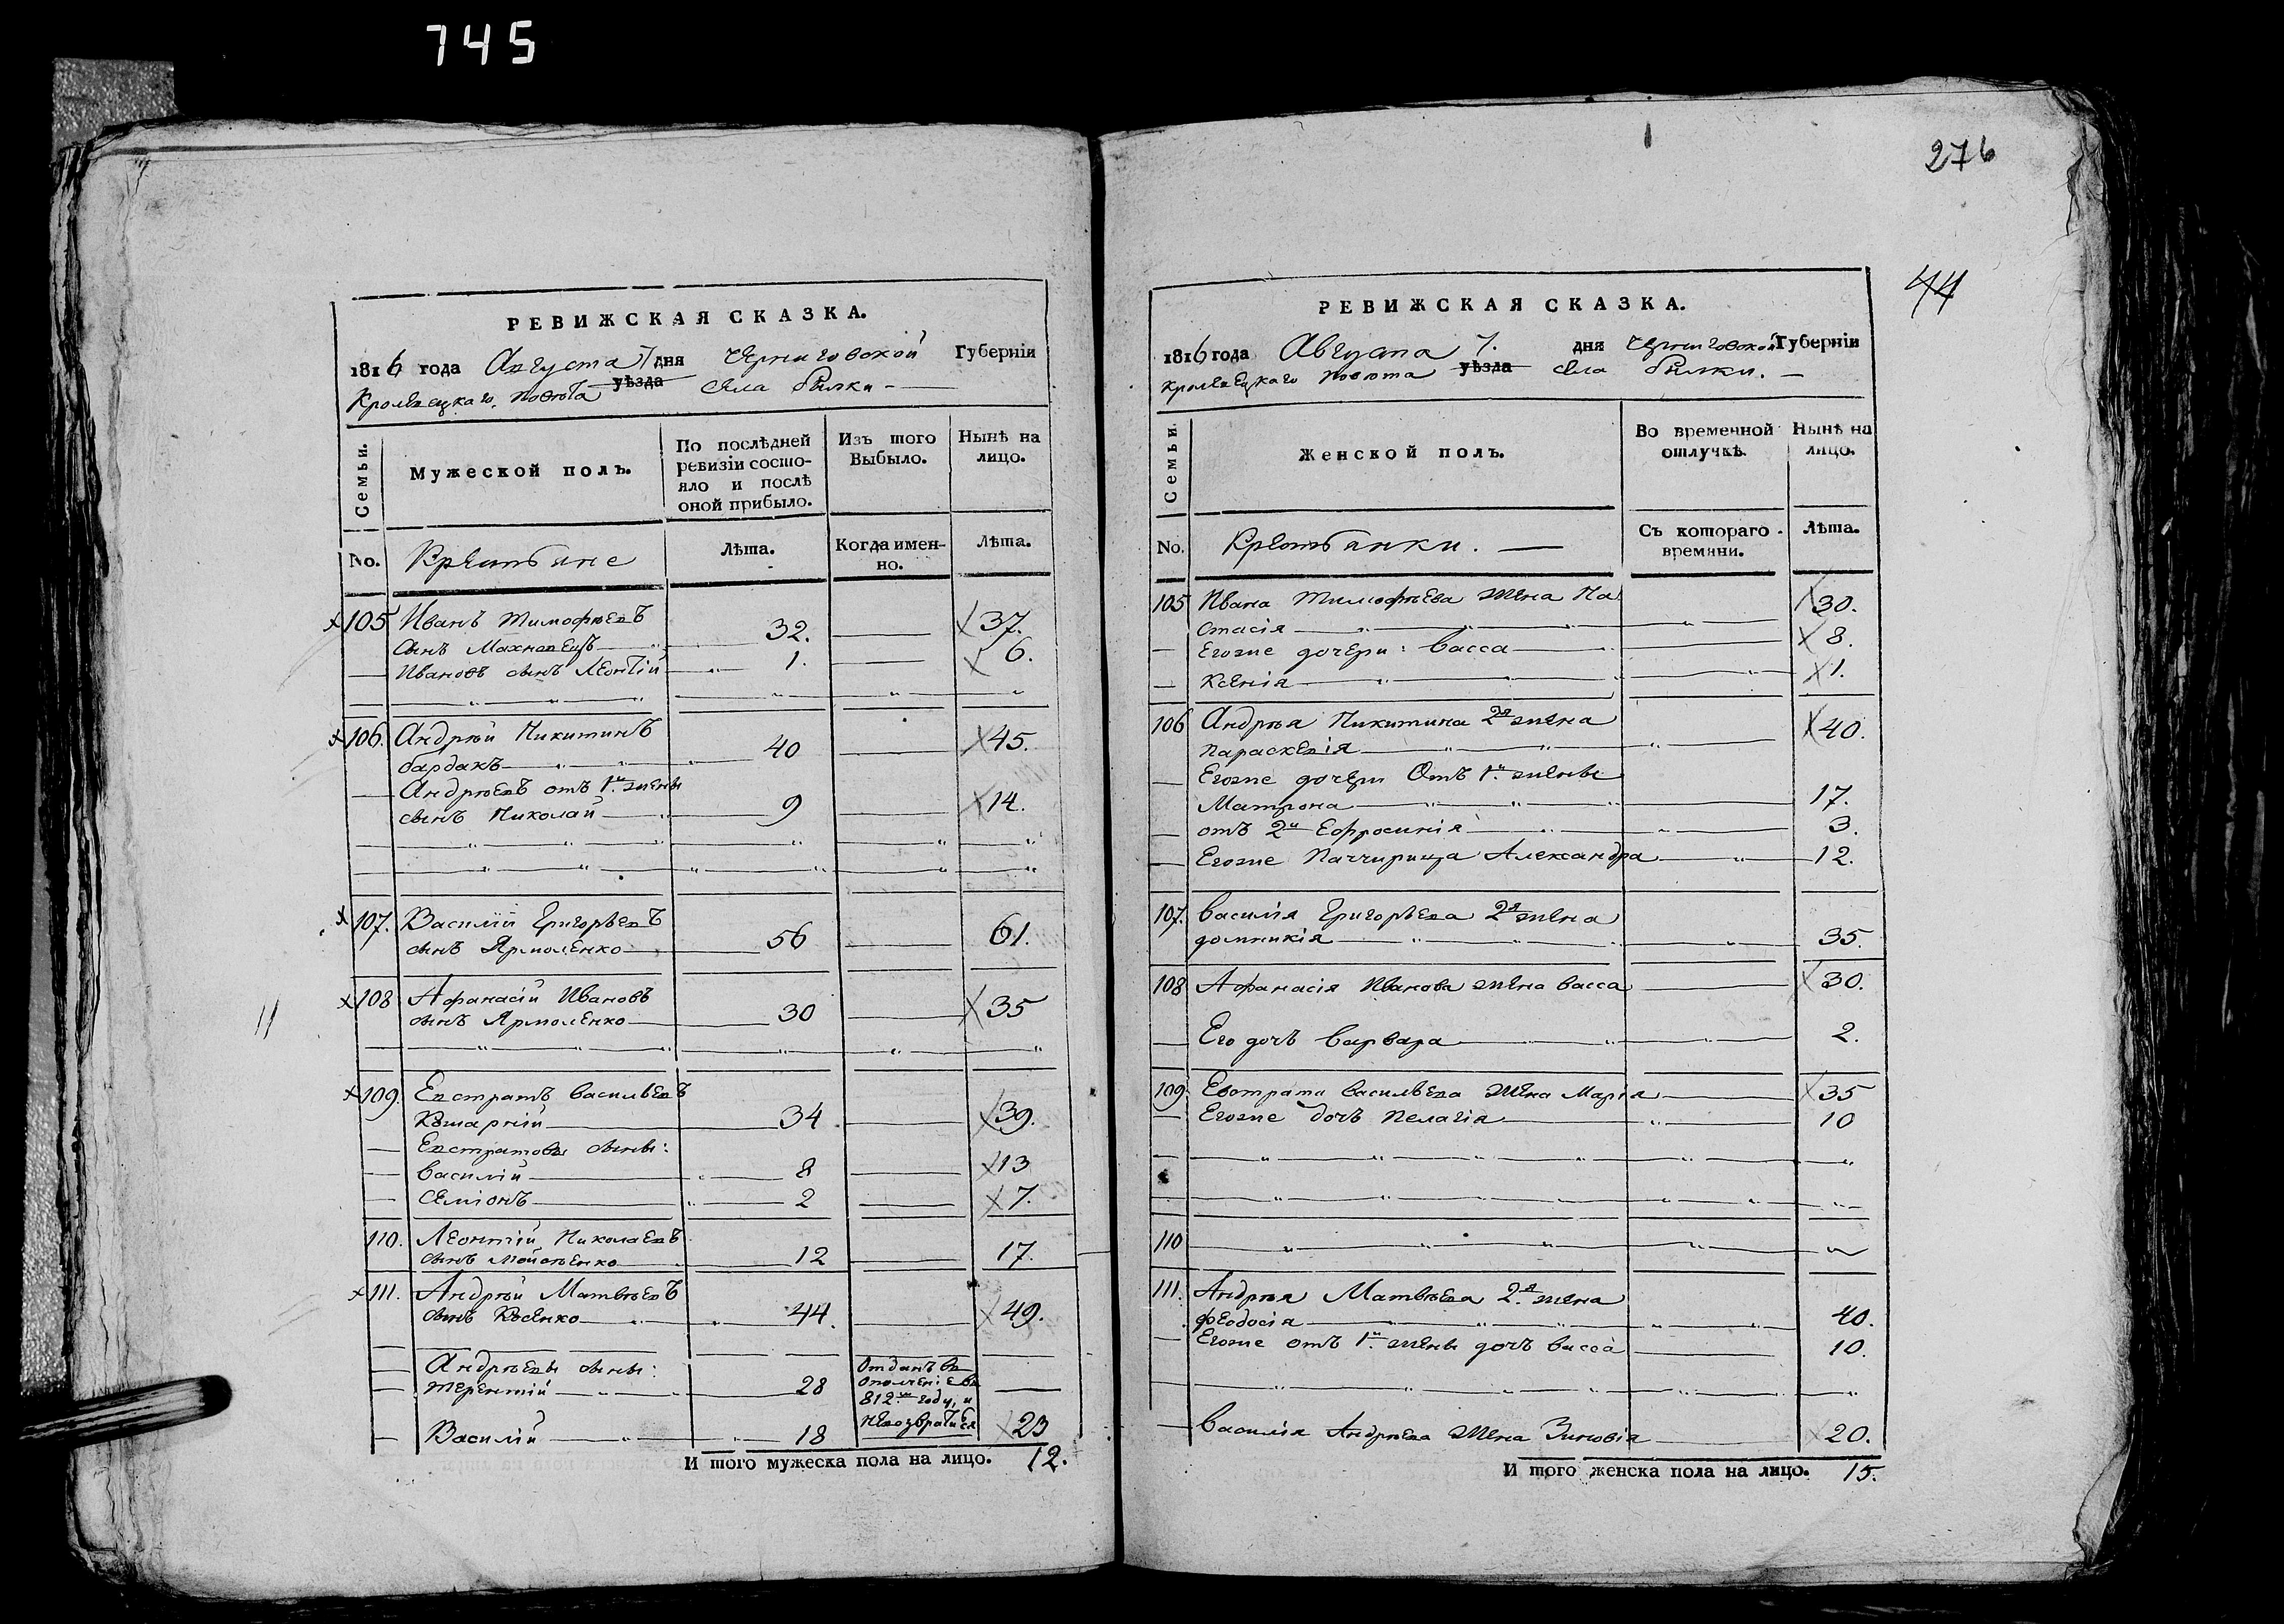 745
276
44
РЕВИЖСКАЯ СКАЗКА.
1816 года Августа 7 дня Черниговской Губерніи
Кролевецкаго повѣта уѣзда села билки
Семьи.
Мужеской полъ.
По послѣдней ревизіи состо-
яло и послѣ
оной прибыло.
Изъ того
Выбыло.
Нынѣ на
лицо.
No.
Крестьяне
Лѣта.
Когда имен-
но.
Лѣта.
105 Иванъ Тимофѣевъ
сынъ Махновецъ 32. 37.
Ивановъ сынъ Леонтій 1. 6.
106. Андрѣй Никитинъ
бардакъ 40 45.
Андрѣевъ отъ 1й жены
сынъ Николай 9 14.
107. Василій Григорьевъ
сынъ Ярмоленко 56 61.
108 Афанасій Ивановъ
сынъ Ярмоленко 30 35
109. Евстратъ Васильевъ
34 39.
Евстратовы сыны:
Василій 8 13
Семіонъ 2 7.
110. Леонтій Николаевъ
сынъ 12 17.
111. Андрѣй Матвѣевъ
сынъ 44. 49.
Андрѣевы сыны:
Терентій 28 Отданъ в
ополченіе в
812м году, и
невозвратился
Василій 18 23
И того мужеска пола на лицо. 12.
РЕВИЖСКАЯ СКАЗКА.
1816 года Августа 7. дня Черниговской Губерніи
Кролевецкаго повѣта уѣзда села билки.
Семьи.
Женской полъ.
Во времечной
отлучкѣ.
Нынѣ на
лицо.
No.
Крестьянки.
Съ котораго
времяни.
Лѣта.
105 Ивана Тимофѣева жена На
стасія 30.
Егоже дочери: Васса 8.
Ксенія 1.
106 Андрѣя Никитина 2я жена
Параскевія 40.
Егоже дочери Отъ 1й жены
Матрона 17.
отъ 2й Ефросинія 3.
Егоже Паччирица Александра 12.
107. Василія Григорьева 2я жена
домникія 35.
108 Афанасія Иванова жена Васса 30.
Его дочь Варвара 2.
109 Евстрата Васильева жена Марія 35
Егоже дочь Пелагія 10
110
111. Андрѣя Матвѣева 2я жена
феодосія 40.
Егоже отъ 1й жены дочь Васса 10.
Василія Андрѣева жена Зиновія 20.
И того женска пола на лицо. 15.